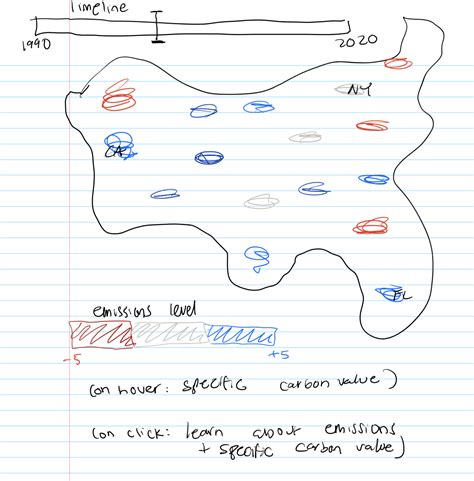 Timeline
1990
2020
NY
CA
FL
emissions level
-5
+5
(on hover: specific carbon value)
(on click: learn about emissions
+ specific carbon value)